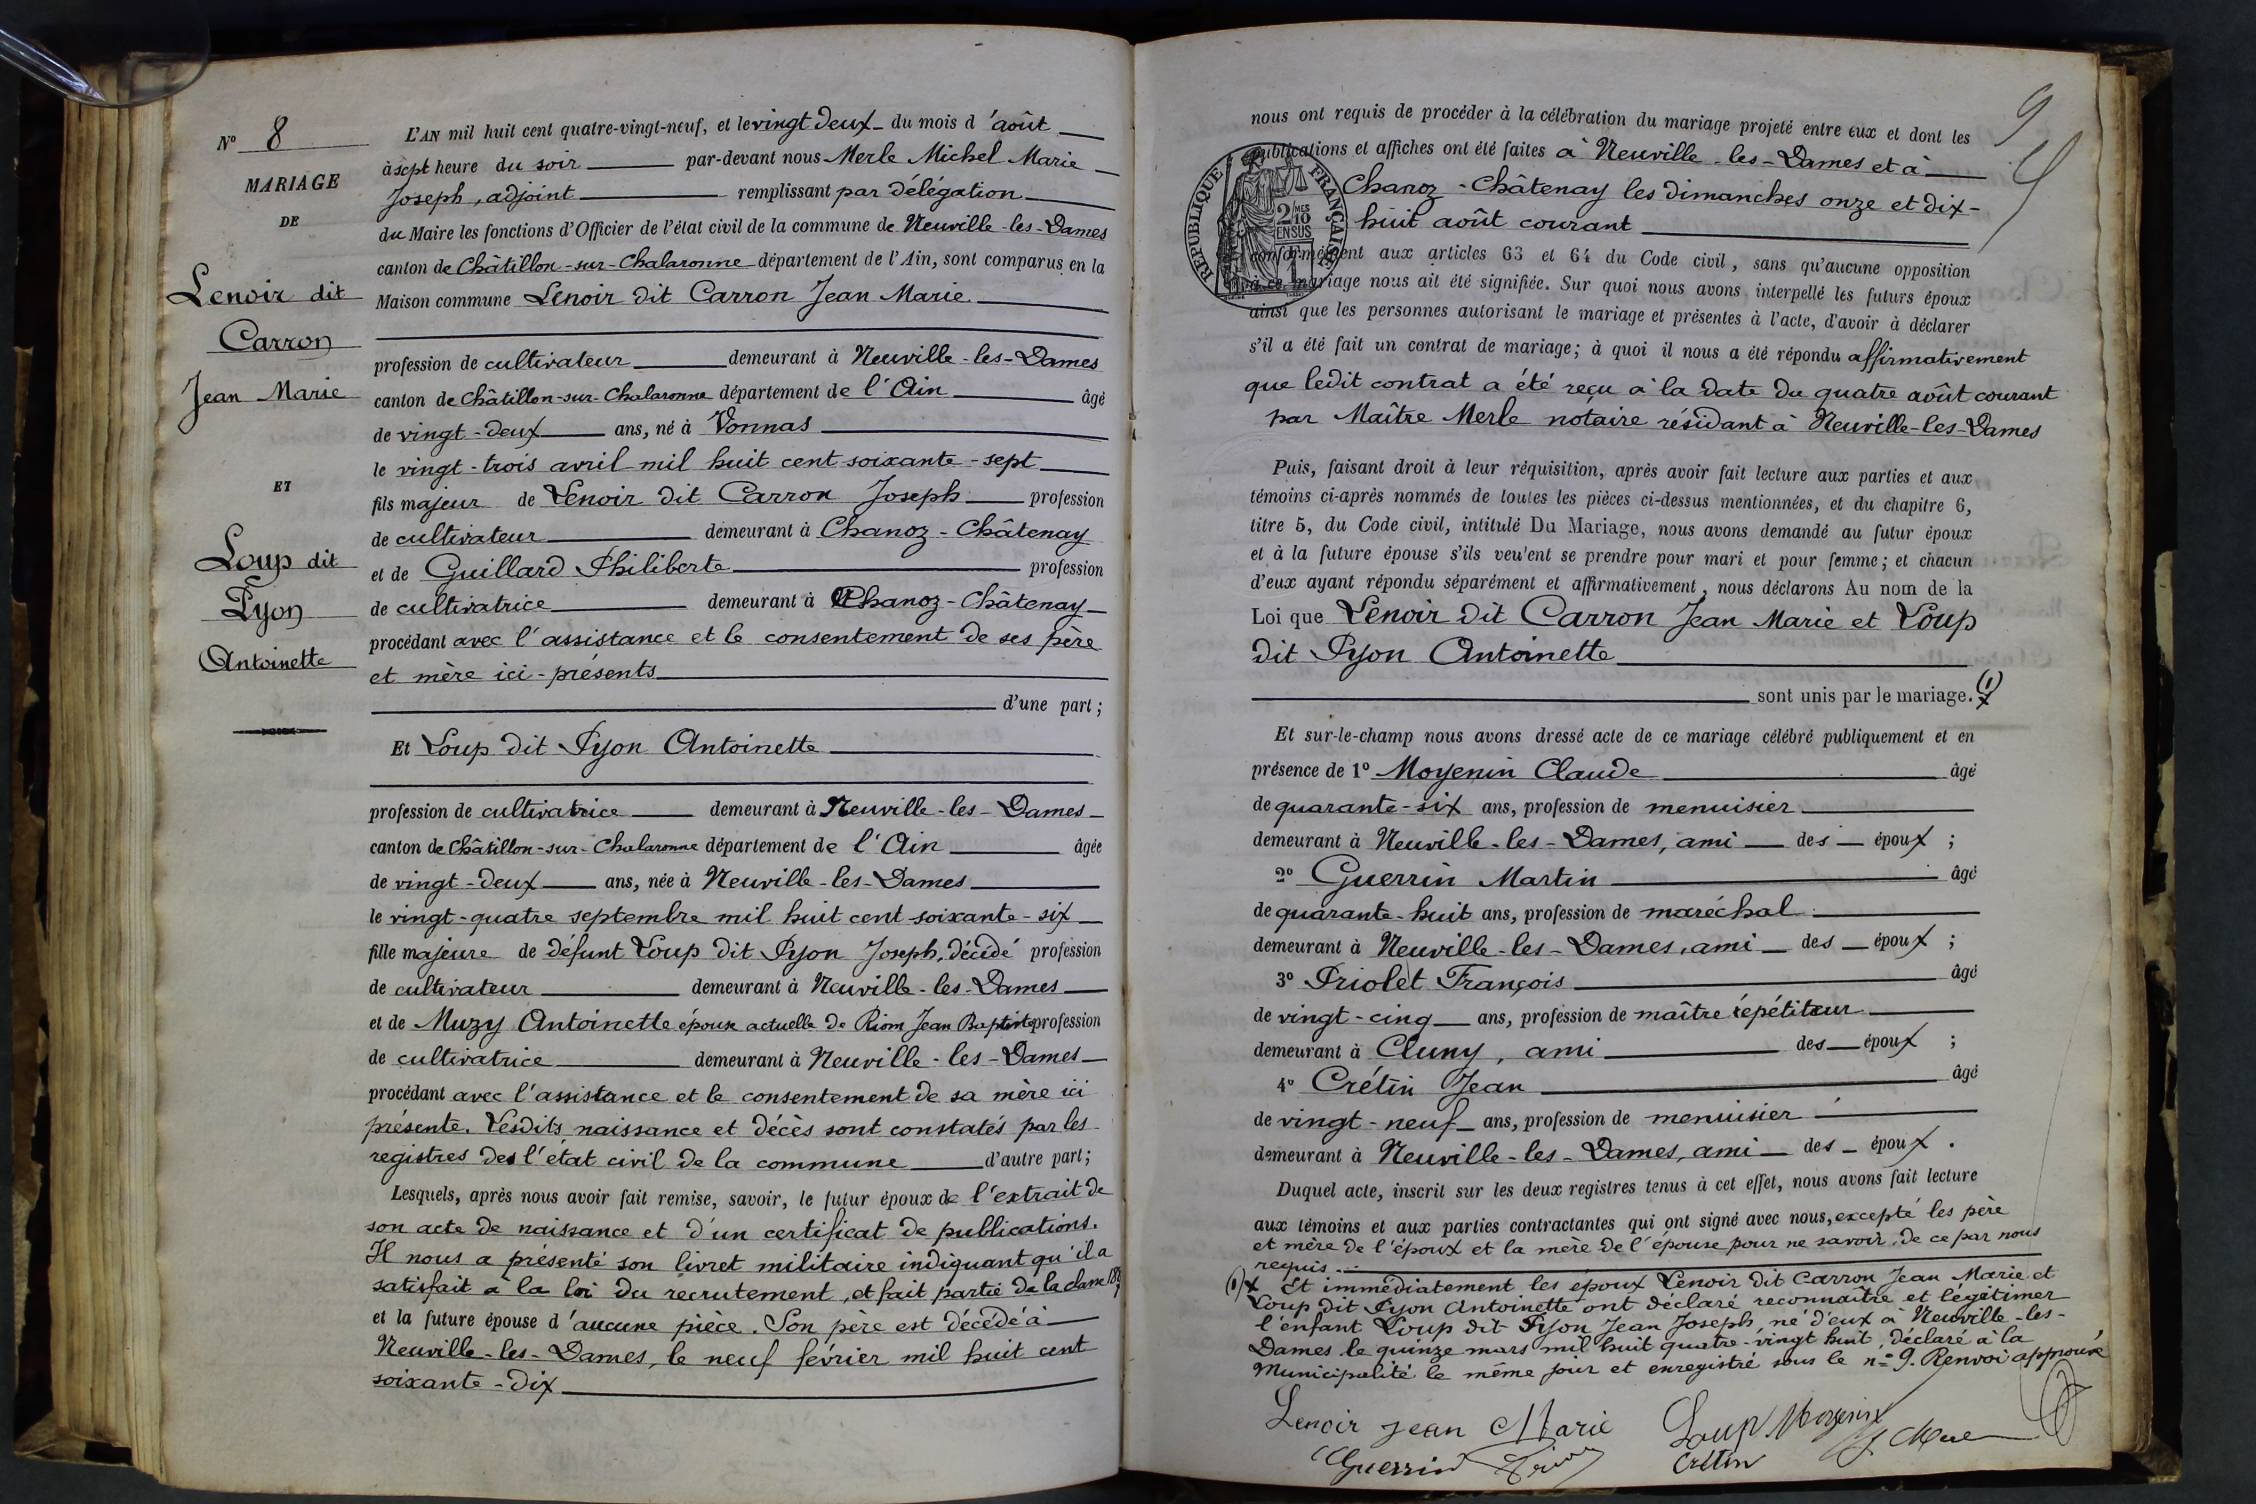 N° 8
MARIAGE
DE
Lenoir dit
Carron
Jean Marie
ET
Loup dit
Pyon
Antoinette
L'AN mil huit cent quatre-vingt-neuf, et le vingt deux du mois d'août
à sept heure du soir par-devant nous Merle Michel Marie
Joseph, adjoint remplissant par délégation
du Maire les fonctions d'Officier de l'état civil de la commune de Neuville-les-Dames
canton de Châtillon-sur-Chalaronne département de l'Ain, sont comparus en la
Maison commune Lenoir dit Carron Jean Marie
profession de cultivateur demeurant à Neuville-les-Dames
canton de Châtillon-sur-Chalaronne département de l'Ain âgé
de vingt-deux ans, né à Vonnas
le vingt-trois avril mil huit cent soixante-sept
fils majeur de Lenoir dit Carron Joseph profession
de cultivateur demeurant à Chanoz-Châtenay
et de Guillard Philiberte profession
de cultivatrice demeurant à Chanoz-Châtenay
procédant avec l'assistance et le consentement de ses père
et mère ici-présents
d'une part;
Et Loup dit Pyon Antoinette
profession de cultivatrice demeurant à Neuville-les-Dames
canton de Châtillon-sur-Chalaronne département de l'Ain âgée
de vingt-deux ans, née à Neuville-les-Dames
le vingt-quatre septembre mil huit cent soixante-six
fille majeure de défunt Loup dit Pyon Joseph, décédé profession
de cultivateur demeurant à Neuville-les-Dames
et de Muzy Antoinette épouse actuelle de Riom Jean Baptiste profession
de cultivatrice demeurant à Neuville-les-Dames
procédant avec l'assistance et le consentement de sa mère ici
présente. Lesdits naissance et décès sont constatés par les
registres des l'état civil de la commune d'autre part;
Lesquels, après nous avoir fait remise, savoir, le futur époux de l'extrait de
son acte de naissance et d'un certificat de publications.
Il nous a présenté son livret militaire indiquant qu'il a
satisfait à la loi du recrutement, et fait partie de la classe
et la future épouse d'aucune pièce. Son père est décédé à
Neuville-les-Dames, le neuf février mil huit cent
soixante-dix
9
nous ont requis de procéder à la célébration du mariage projeté entre eux et dont les
publications et affiches ont été faites à Neuville-les-Dames et à
Chanoz-Châtenay les dimanches onze et dix-
huit août courant
RÉPUBLIQUE FRANÇAISE
2/10 MES
EN SUS
conformément aux articles 63 et 64 du Code civil, sans qu'aucune opposition
à ce mariage nous ait été signifiée. Sur quoi nous avons interpellé les futurs époux
ainsi que les personnes autorisant le mariage et présentes à l'acte, d'avoir à déclarer
s'il a été fait un contrat de mariage; à quoi il nous a été répondu affirmativement
que ledit contrat a été reçu à la date du quatre août courant
par Maître Merle notaire résidant à Neuville-les-Dames
Puis, faisant droit à leur réquisition, après avoir fait lecture aux parties et aux
témoins ci-après nommés de toutes les pièces ci-dessus mentionnées, et du chapitre 6,
titre 5, du Code civil, intitulé Du Mariage, nous avons demandé au futur époux
et à la future épouse s'ils veulent se prendre pour mari et pour femme; et chacun
d'eux ayant répondu séparément et affirmativement, nous déclarons Au nom de la
Loi que Lenoir dit Carron Jean Marie et Loup
dit Pyon Antoinette
sont unis par le mariage. (1)
Et sur-le-champ nous avons dressé acte de ce mariage célébré publiquement et en
présence de 1° Moyenin Claude âgé
de quarante-six ans, profession de menuisier
demeurant à Neuville-les-Dames, ami des époux ;
2° Guerrin Martin âgé
de quarante-huit ans, profession de maréchal
demeurant à Neuville-les-Dames, ami des époux ;
3° Priolet François âgé
de vingt-cinq ans, profession de maître répétiteur
demeurant à Cluny, ami des époux ;
4° Crétin Jean âgé
de vingt-neuf ans, profession de menuisier
demeurant à Neuville-les-Dames, ami des époux.
Duquel acte, inscrit sur les deux registres tenus à cet effet, nous avons fait lecture
aux témoins et aux parties contractantes qui ont signé avec nous, excepté les père
et mère de l'époux et la mère de l'épouse pour ne savoir, de ce par nous
requis.
(1) X Et immédiatement les époux Lenoir dit Carron Jean Marie et
Loup dit Pyon Antoinette ont déclaré reconnaître et légitimer
l'enfant Loup dit Pyon Jean Joseph né d'eux à Neuville-les-
Dames le quinze mars mil huit quatre-vingt huit, déclaré à la
Municipalité le même jour et enregistré sous le n° 9. Renvoi approuvé
Lenoir Jean Marie Loup Moyenin
Guerrin Crétin J. Merle